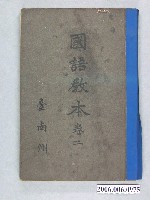 國語教本 卷二
臺南州
2006.006.0975